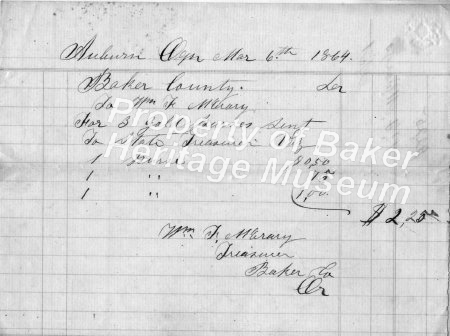 Auburn Ogn Mar 6th 1864.
Baker County. Dr
To Wm F McCrary
For 3 Gold Scales Sent
To State Treasurer Viz
1 80.50
1 "
1 " 1,00
$2,25
Wm F, McCrary
Treasurer
Baker Co
Or
Property of Baker
Heritage Museum